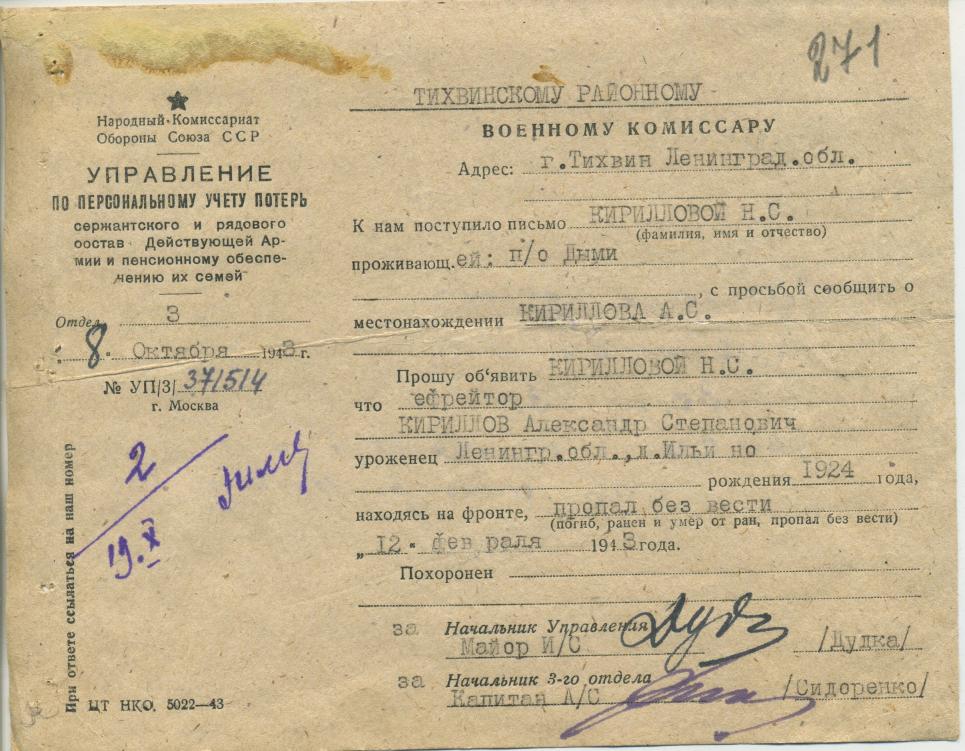 271
Народный Комиссариат
Обороны Союза ССР
УПРАВЛЕНИЕ
ПО ПЕРСОНАЛЬНОМУ УЧЕТУ ПОТЕРЬ
сержантского и рядового
состав Действующей Ар-
мии и пенсионному обеспе-
чению их семей
Отдел 3
8. Октября 1943 г.
№ УП/3/ 371514
г. Москва
2
19.X
При ответе ссылаться на наш номер
ЦТ НКО. 5022—43
ТИХВИНСКОМУ РАЙОННОМУ
ВОЕННОМУ КОМИССАРУ
Адрес: г.Тихвин Ленинград.обл.
К нам поступило письмо КИРИЛЛОВОЙ Н.С.
(фамилия, имя и отчество)
проживающ.ей: п/о Дыми
, с просьбой сообщить о
местонахождении КИРИЛЛОВА А.С.
Прошу об'явить КИРИЛЛОВОЙ Н.С.
что ефрейтор
КИРИЛЛОВ Александр Степанович
уроженец Ленингр.обл.,д.Ильи но
рождения 1924 года,
находясь на фронте, пропал без вести
(погиб, ранен и умер от ран, пропал без вести)
„12" фев раля 1943 года.
Похоронен
за Начальник Управления
Майор И/С /Дудка/
за Начальник 3-го отдела
Капитан А/С /Сидоренко/